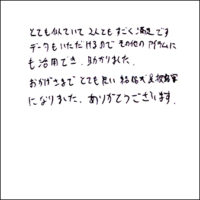 とても似ていて 2人とも すごく 満足です
データも いただけるので その他の アイテムに
も 活用でき、助かりました。
おかげさまで とても 良い 結婚式 披露宴
になりました。ありがとうございます。